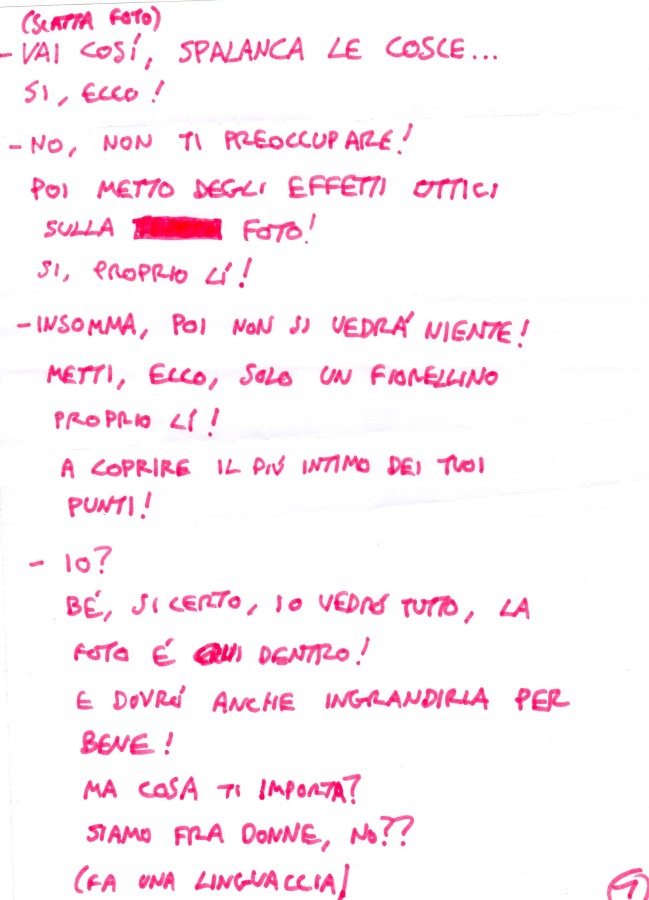 (SCATTA FOTO)
- VAI COSÍ, SPALANCA LE COSCE...
SI, ECCO!
- NO, NON TI PREOCCUPARE!
POI METTO DEGLI EFFETTI OTTICI
SULLA FOTO!
SI, PROPRIO LÍ!
- INSOMMA, POI NON SI VEDRÁ NIENTE!
METTI, ECCO, SOLO UN FIORELLINO
PROPRIO LÍ!
A COPRIRE IL PIÚ INTIMO DEI TUOI
PUNTI!
- IO?
BÉ, SI CERTO, IO VEDRÓ TUTTO, LA
FOTO É QUI DENTRO!
E DOVRÓ ANCHE INGRANDIRLA PER
BENE!
MA COSA TI IMPORTA?
SIAMO FRA DONNE, NO??
(FA UNA LINGUACCIA)